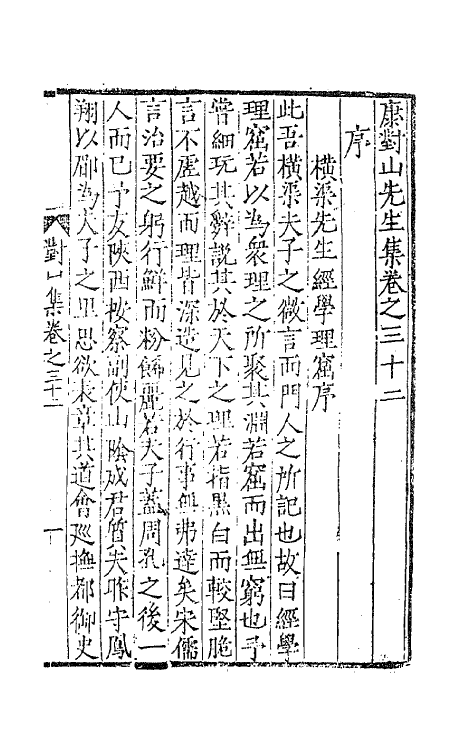 康對山先生集卷之三十二
序
橫渠先生經學理窟序
此吾橫渠夫子之微言而門人之所記也故曰經學
理窟若以為衆理之所聚其淵若窟而出無窮也予
嘗細玩其辭說其於天下之理若指黑白而較堅脆
言不虛越而理皆深造見之於行事無弗達矣宋儒
言治要之躬行鮮而粉餙麗若夫子蓋周孔之後一
人而已予友陝西按察副使山陰成君質夫昨守鳳
翔以郿為夫子之里思欲表章其道會廵撫都御史
對山集卷之三十二
一